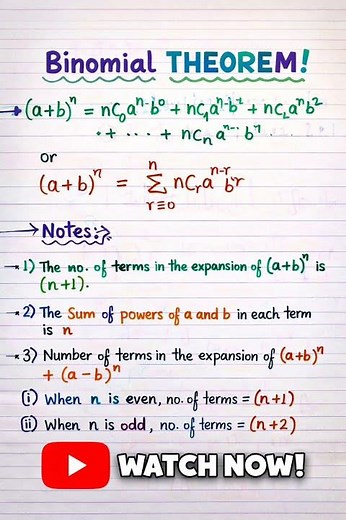 Binomial THEOREM!
→(a+b)ⁿ = nC₀aⁿ⁻b⁰ + nC₁aⁿ⁻b⁻¹ + nC₂aⁿb²
+ ... + nCₙaⁿ⁻b⁷ ..
or
(a+b)ⁿ = Σ nCᵣaⁿ⁻ʳbʳ
n
r≡0
→Notes:→
→1) The no. of terms in the expansion of (a+b)ⁿ is
(n+1).
→2) The Sum of powers of a and b in each term
is n
→3) Number of terms in the expansion of (a+b)ⁿ
+ (a-b)ⁿ
(i) When n is even, no. of terms = (n+1)
(ii) When n is odd, no. of terms = (n+2)
WATCH NOW!